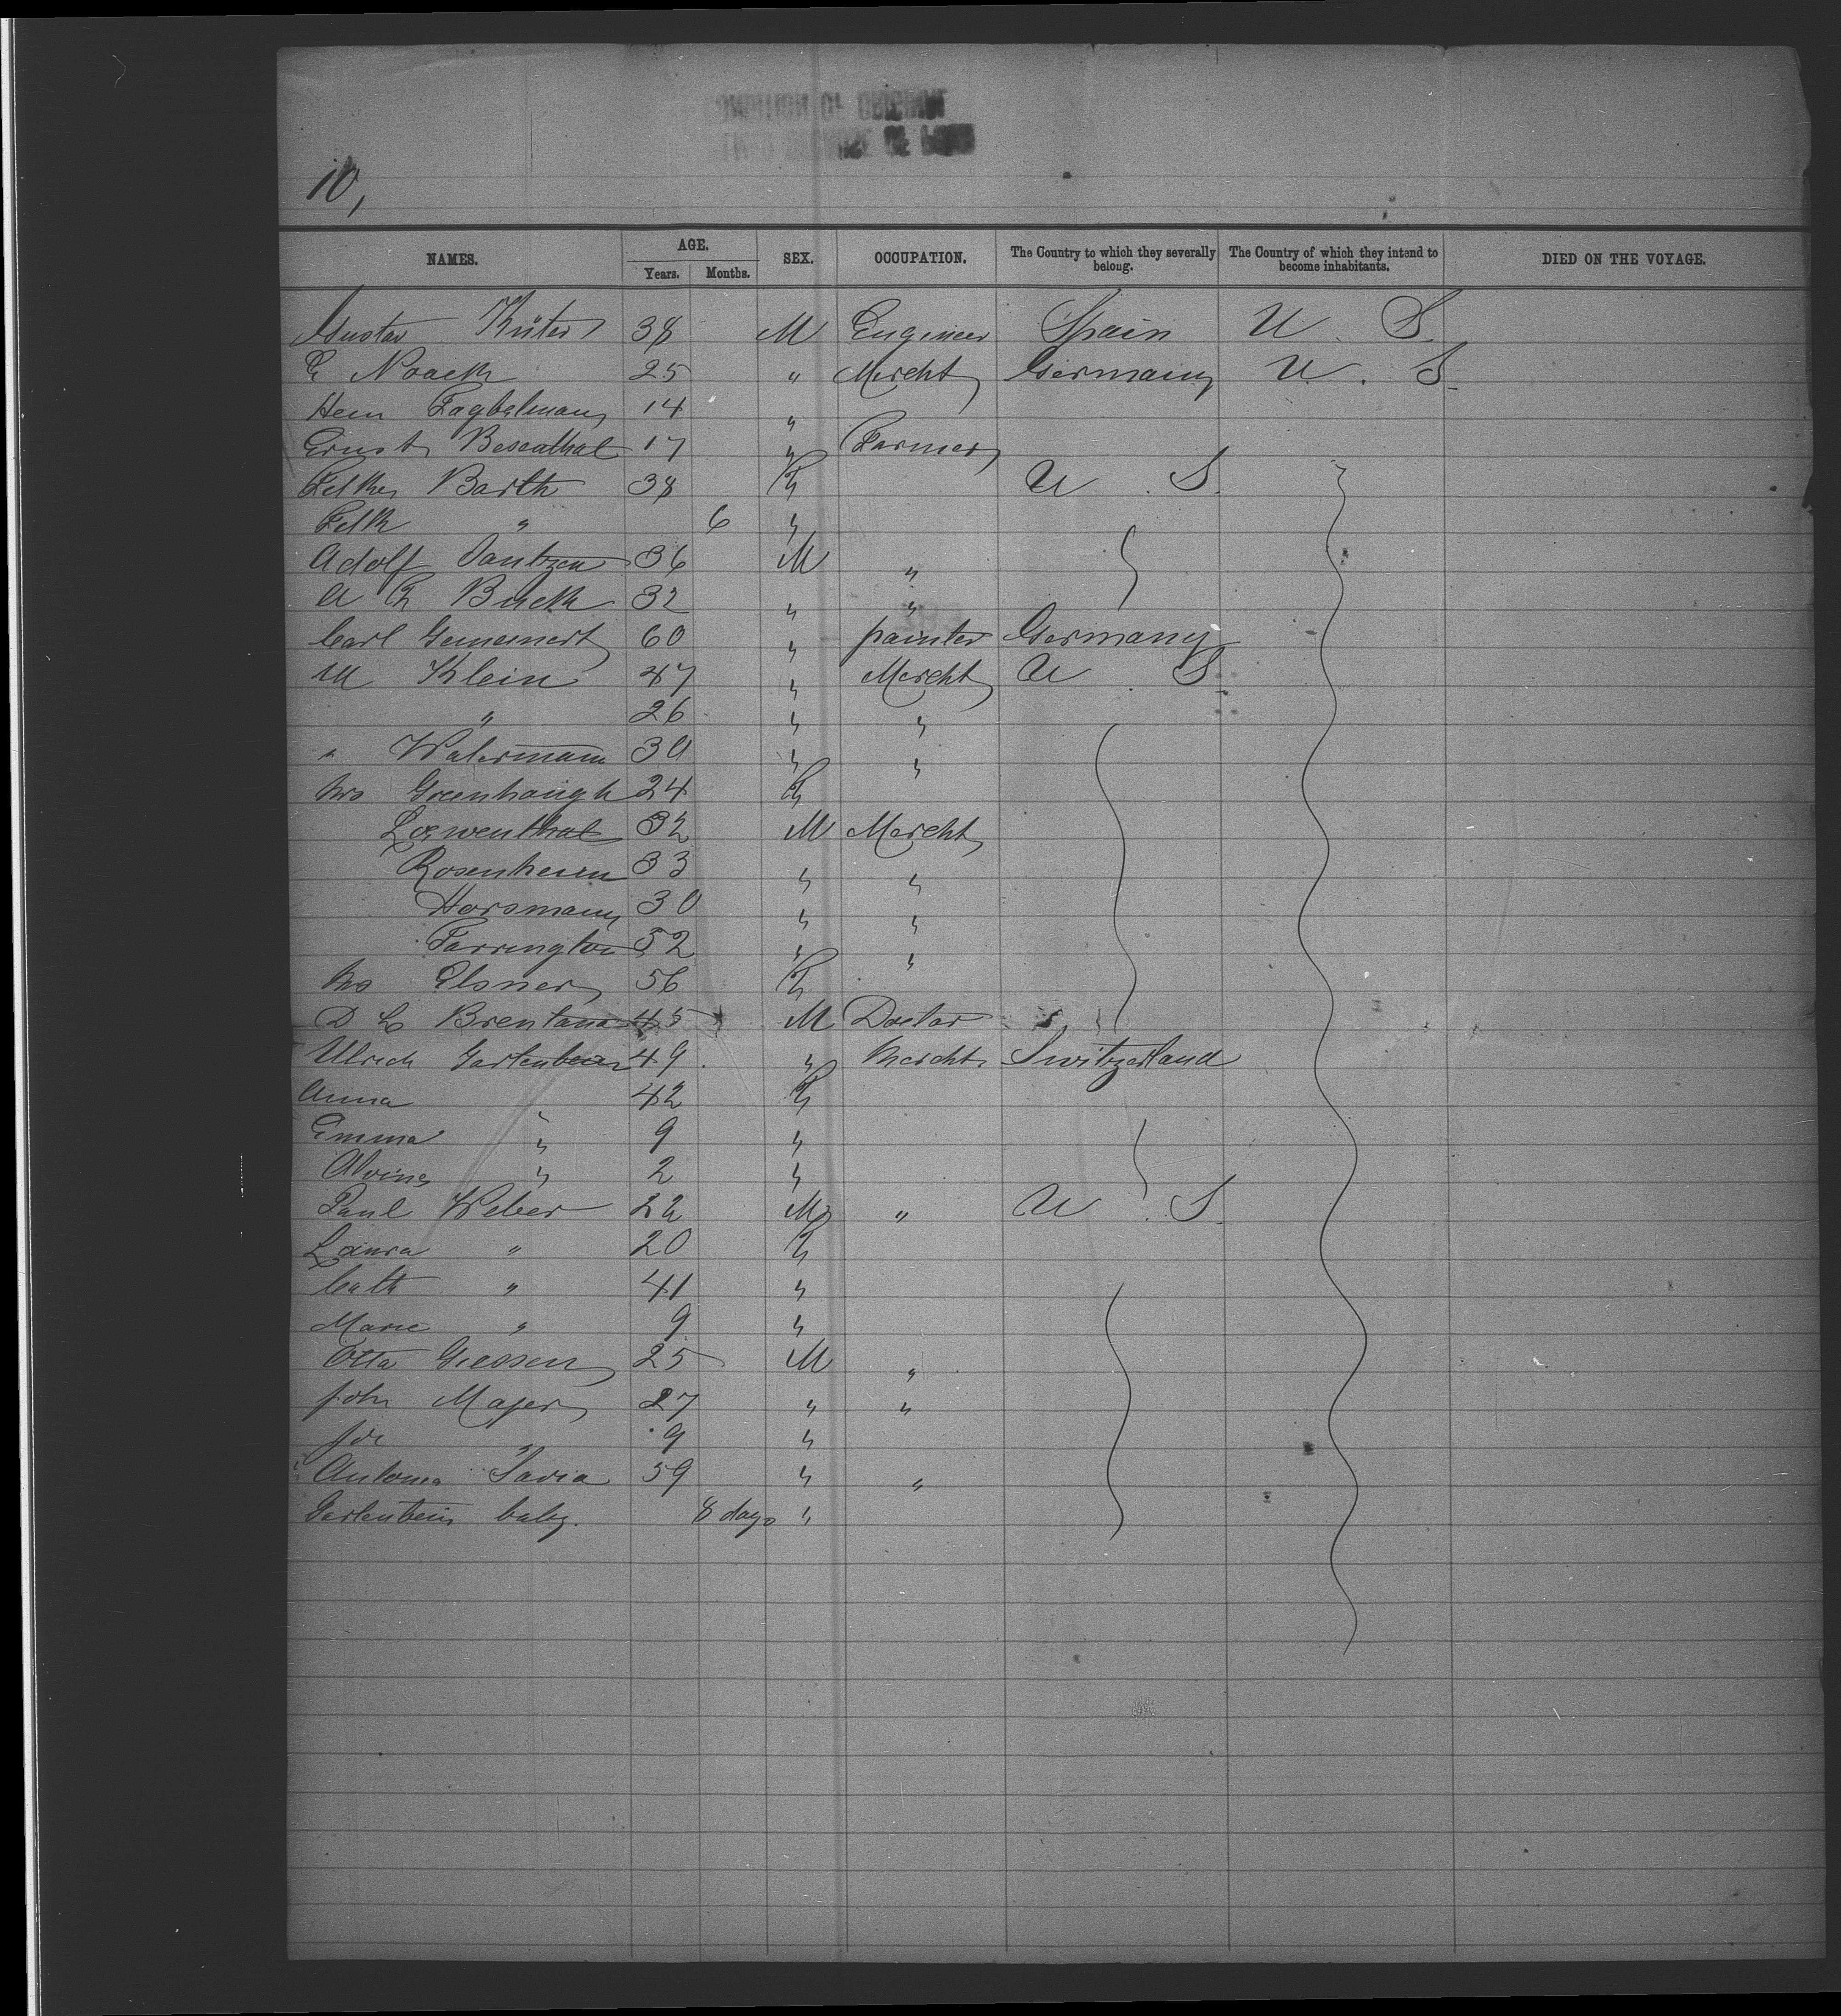 10,
NAMES. AGE. SEX. OCCUPATION. The Country to which they severally belong. The Country of which they intend to become inhabitants. DIED ON THE VOYAGE.
Years. Months.
Gustav Küter 38 M Engineer Spain U. S.
E Noack 25 " Mercht Germany U. S.
Hein 14 "
Ernst Besenthal 17 " Farmer
Barth 38 F U. S.
" 6 "
Adolf Dantzen 36 M "
A F Buck 32 " "
Carl 60 " painter Germany
M Klein 47 " Mercht U. S.
" 26 " "
" Waterman 30 " "
Mrs Greenhaugh 24 F
Loewenthal 32 M Mercht
Rosenheim 33 " "
Horsmann 30 " "
Farrington 32 " "
Mrs Elsner 56 F
D L Brentano 45 M Doctor
Ulrich Gartenbein 49 " Mercht Switzerland
Anna 42 F
Emma " 9 "
Alvina " 2 "
Paul Weber 22 M " U. S.
Laura " 20 F
Cath " 41 "
Marie " 9 "
Otto Giessen 25 M "
John Majer 27 " "
Joe " 9 "
Antonia Savia 59 " "
Gartenbein baby. 8 days "